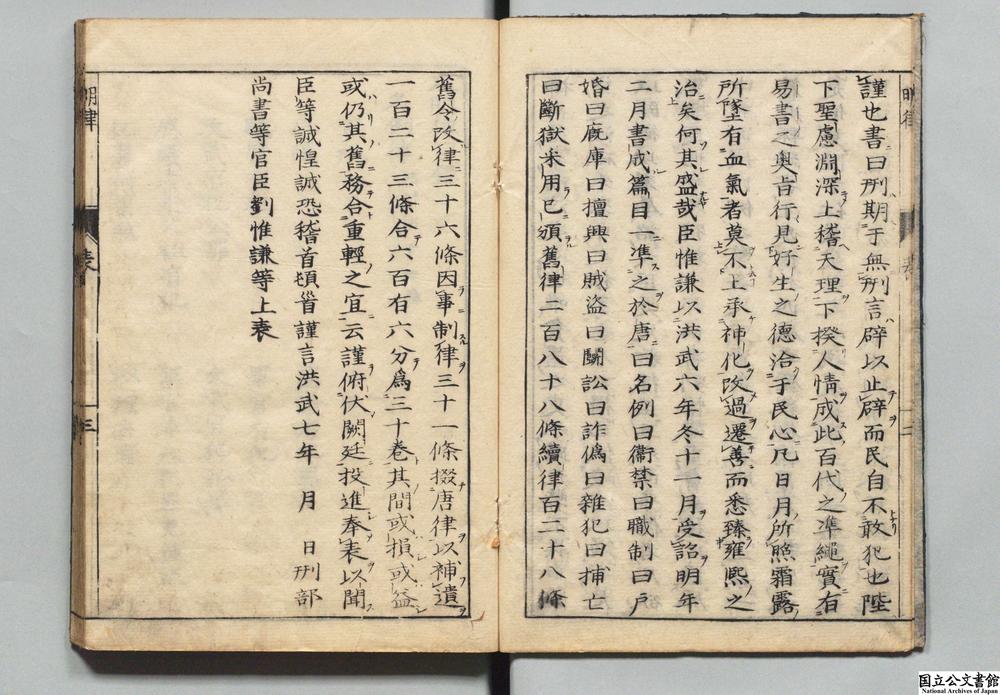 謹也書曰刑期于無刑言辟以止辟而民自不敢犯也陛
下聖慮淵深上稽天理下揆人情成此百代之準繩實有
易書之奥旨行見好生之德洽于民心凡日月所照霜露
所墜有血氣者莫不上承神化改過遷善而悉臻雍熙之
治矣何其盛哉臣惟謙以洪武六年冬十一月受詔明年
二月書成篇目一準之於唐曰名例曰衞禁曰職制曰戸
婚曰廐庫曰擅興曰賊盜曰鬭訟曰詐僞曰雜犯曰捕亡
曰斷獄采用已頒舊律二百八十八條續律百二十八條
舊令改律三十六條因事制律三十一條掇唐律以補遺
一百二十三條合六百有六分爲三十卷其間或損或益
或仍其舊務合重輕之宜云謹俯伏闕廷投進奉表以聞
臣等誠惶誠恐稽首頓首謹言洪武七年 月 日刑部
尚書等官臣劉惟謙等上表
明律 表 三
国立公文書館
National Archives of Japan